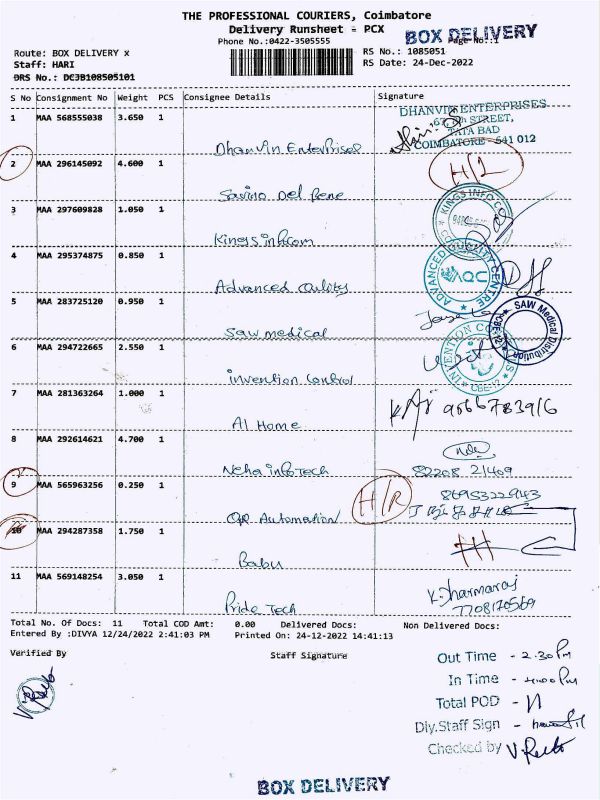 THE PROFESSIONAL COURIERS, Coimbatore
Delivery Runsheet - PCX
BOX DELIVERY
Phone No.:0422-3505555
Page No.:1
Route: BOX DELIVERY x
RS No.: 1085051
Staff: HARI
RS Date: 24-Dec-2022
DRS No.: DCJB108505101
S No Consignment No Weight PCS Consignee Details Signature
1 MAA 568555038 3.650 1
DHANVIN ENTERPRISES
STREET,
TATA BAD
COIMBATORE - 641 012
Dhanvin Enterprises
2 MAA 296145092 4.600 1
Savino Del Bene
3 MAA 297609828 1.050 1
KINGS INFO CO
Kings infocom
4 MAA 295374875 0.850 1
ADVANCED QUALITY CENTRE
AQC
Advanced Quility
5 MAA 283725120 0.950 1
SAW Medical Distribution
CBE-12
Saw medical
6 MAA 294722665 2.550 1
INVENTION CO
CBE-12
invention Control
7 MAA 281363264 1.000 1
9566783916
A1 Home
8 MAA 292614621 4.700 1
Neha infotech
82208 21409
9 MAA 565963256 0.250 1
H/R
8695322943
QR Automation
10 MAA 294287358 1.750 1
Babu
11 MAA 569148254 3.050 1
K. Dharmaraj
7708170569
Pride Tech
Total No. Of Docs: 11 Total COD Amt: 0.00 Delivered Docs: Non Delivered Docs:
Entered By :DIVYA 12/24/2022 2:41:03 PM Printed On: 24-12-2022 14:41:13
Verified By Staff Signature
Out Time - 2.30 Pm
In Time - 4.00 Pm
Total POD - 11
Dly.Staff Sign -
Checked by
BOX DELIVERY